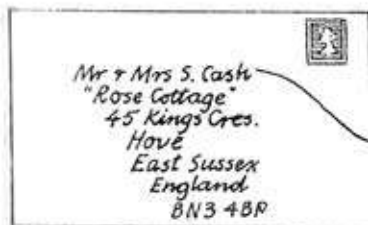 Mr & Mrs S. Cash
"Rose Cottage"
45 Kings Cres.
Hove
East Sussex
England
BN3 4BR